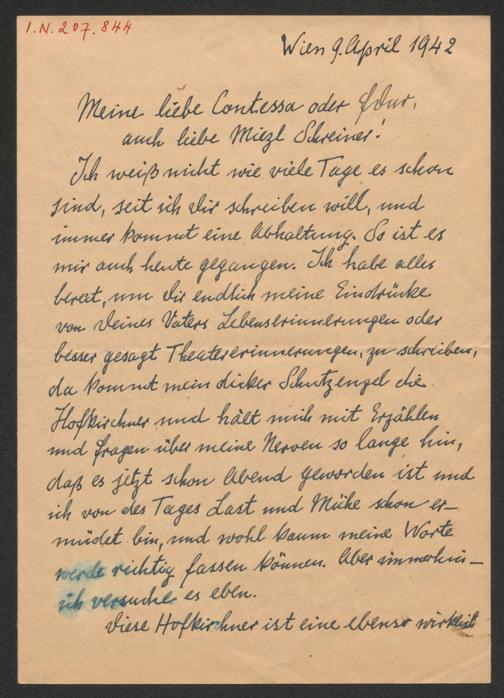 I.N. 207.844
Wien 9. April 1942
Meine liebe Contessa oder
auch liebe Miezl Schreiner!
Ich weiß nicht wie viele Tage es schon
sind, seit ich dir schreiben will, und
immer kommt eine Abhaltung. So ist es
mir auch heute gegangen. Ich habe alles
bereit, um dir endlich meine Eindrücke
von Deines Vaters Lebenserinnerungen oder
besser gesagt Theatererinnerungen, zu schreiben,
da kommt mein dicker Schutzengel die
Hofkirchner und hält mich mit Erzählen
und fragen über meine Nerven so lange hin,
daß es jetzt schon Abend geworden ist und
ich von des Tages Last und Mühe schon er-
müdet bin, und wohl kaum meine Worte
werde richtig fassen können. Aber immerhin –
ich versuche es eben.
Diese Hofkirchner ist eine ebenso wirklich